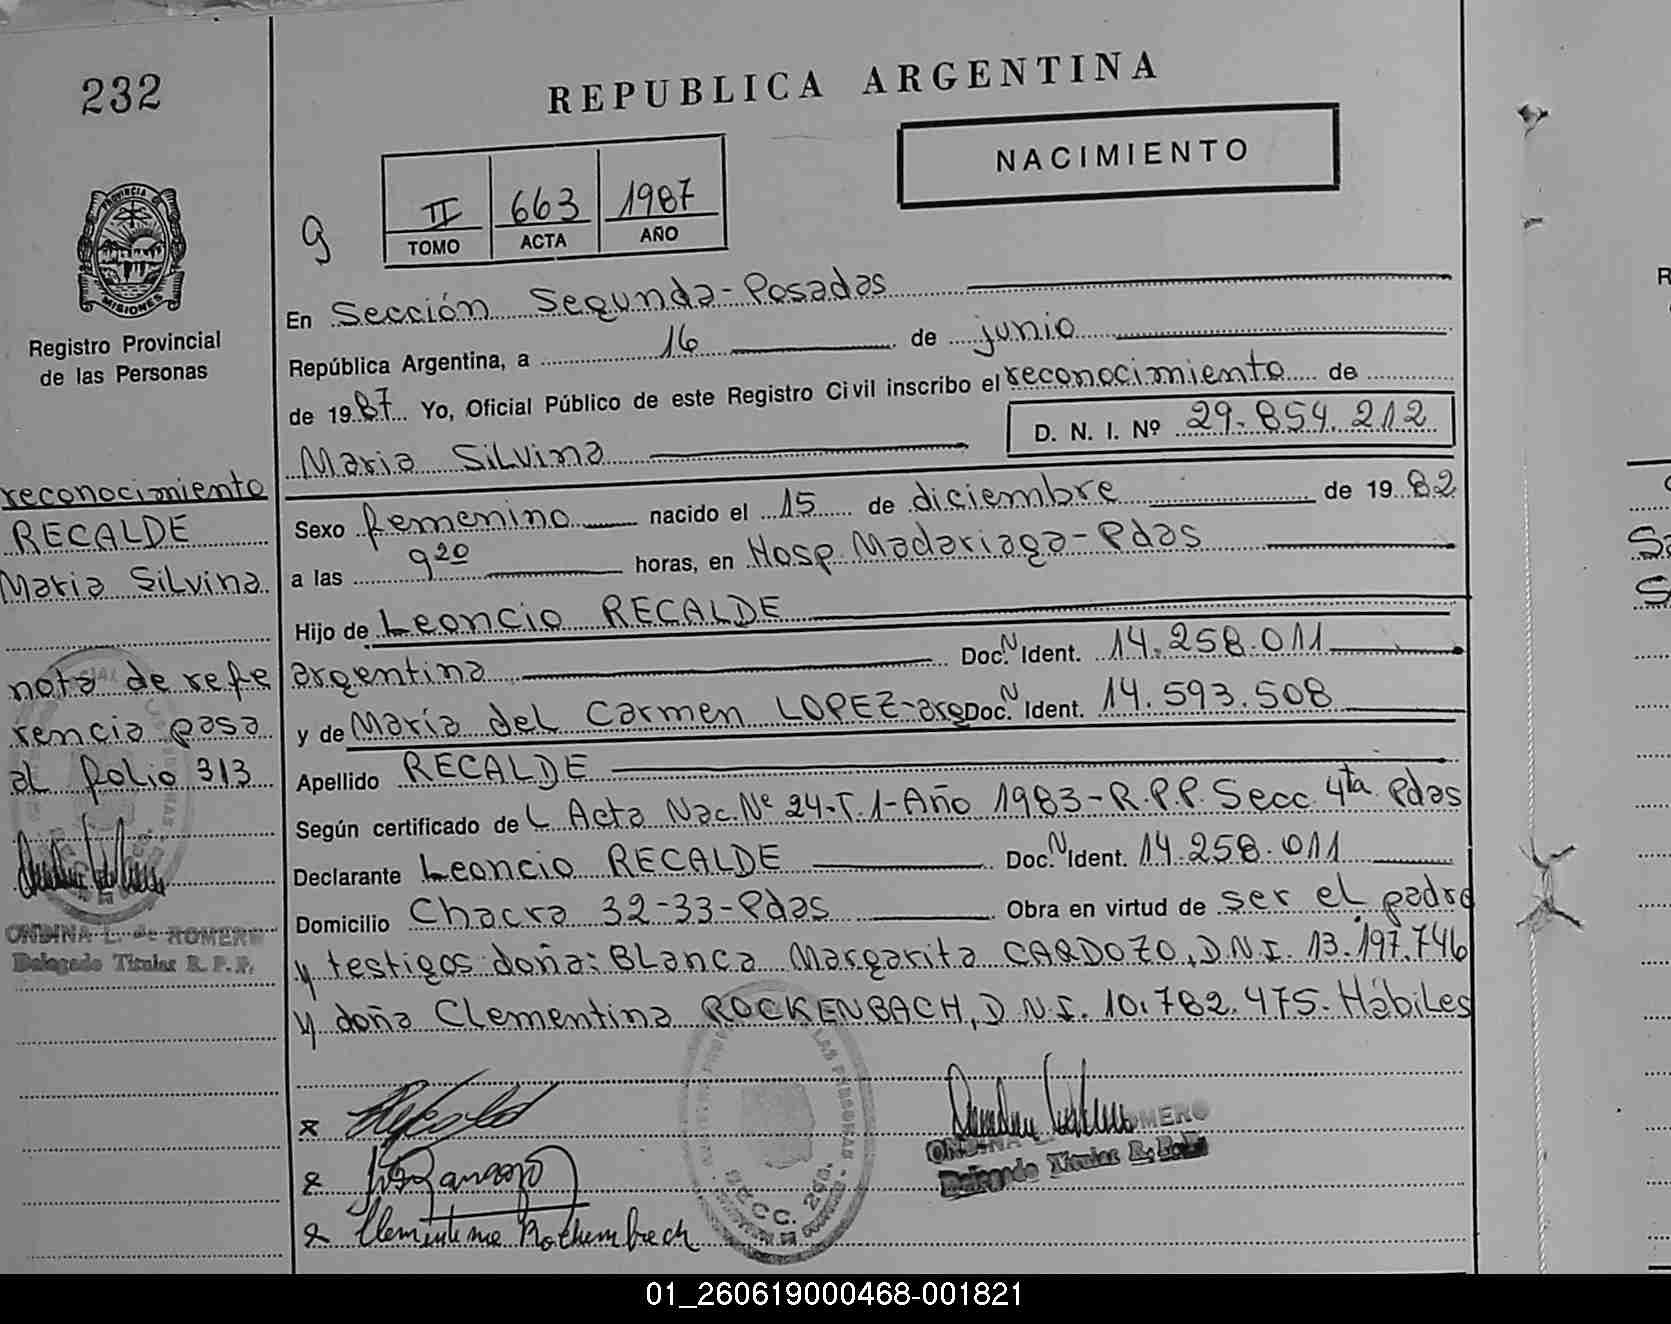 232
REPUBLICA ARGENTINA
NACIMIENTO
PROVINCIA
MISIONES
Registro Provincial
de las Personas
g
II 663 1987
TOMO ACTA AÑO
En Sección Segunda-Posadas
República Argentina, a 16 de junio
de 1987 Yo, Oficial Público de este Registro Civil inscribo el reconocimiento de
Maria Silvina D. N. I. Nº 29.854.212
Sexo femenino nacido el 15 de diciembre de 1982
a las 9 20 horas, en Hosp. Madariaga-Pdas
Hijo de Leoncio RECALDE
argentina Doc. N Ident. 14.258.011
y de María del Carmen LOPEZ-arg Doc. N Ident. 14.593.508
Apellido RECALDE
Según certificado de L Acta Nac. Nº 24-T.1-Año 1983-R.P.P. Secc 4ta Pdas
Declarante Leoncio RECALDE Doc. N Ident. 14.258.011
Domicilio Chacra 32-33-Pdas Obra en virtud de ser el padre
y testigos doña: Blanca Margarita CARDOZO, D.N.I. 13.197.746
y doña Clementina ROCKENBACH, D.N.I. 10.782.475. Hábiles
reconocimiento
RECALDE
Maria Silvina
nota de refe
rencia pasa
al folio 313
ONDINA L. de ROMERO
Delegado Titular R. P. P.
ROMERO
Delegado Titular R.
SECC. 2da.
Clementina Rockembach
01_260619000468-001821